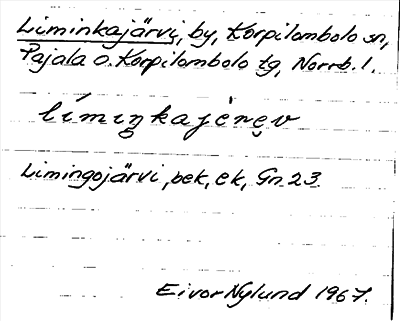 Liminkajärvi, by, Korpilombolo sn,
Pajala o. Korpilombolo tg, Norrb. l.
límiŋkajèrev
Limingojärvi, bek, ek, Gn 23
Eivor Nylund 1967.